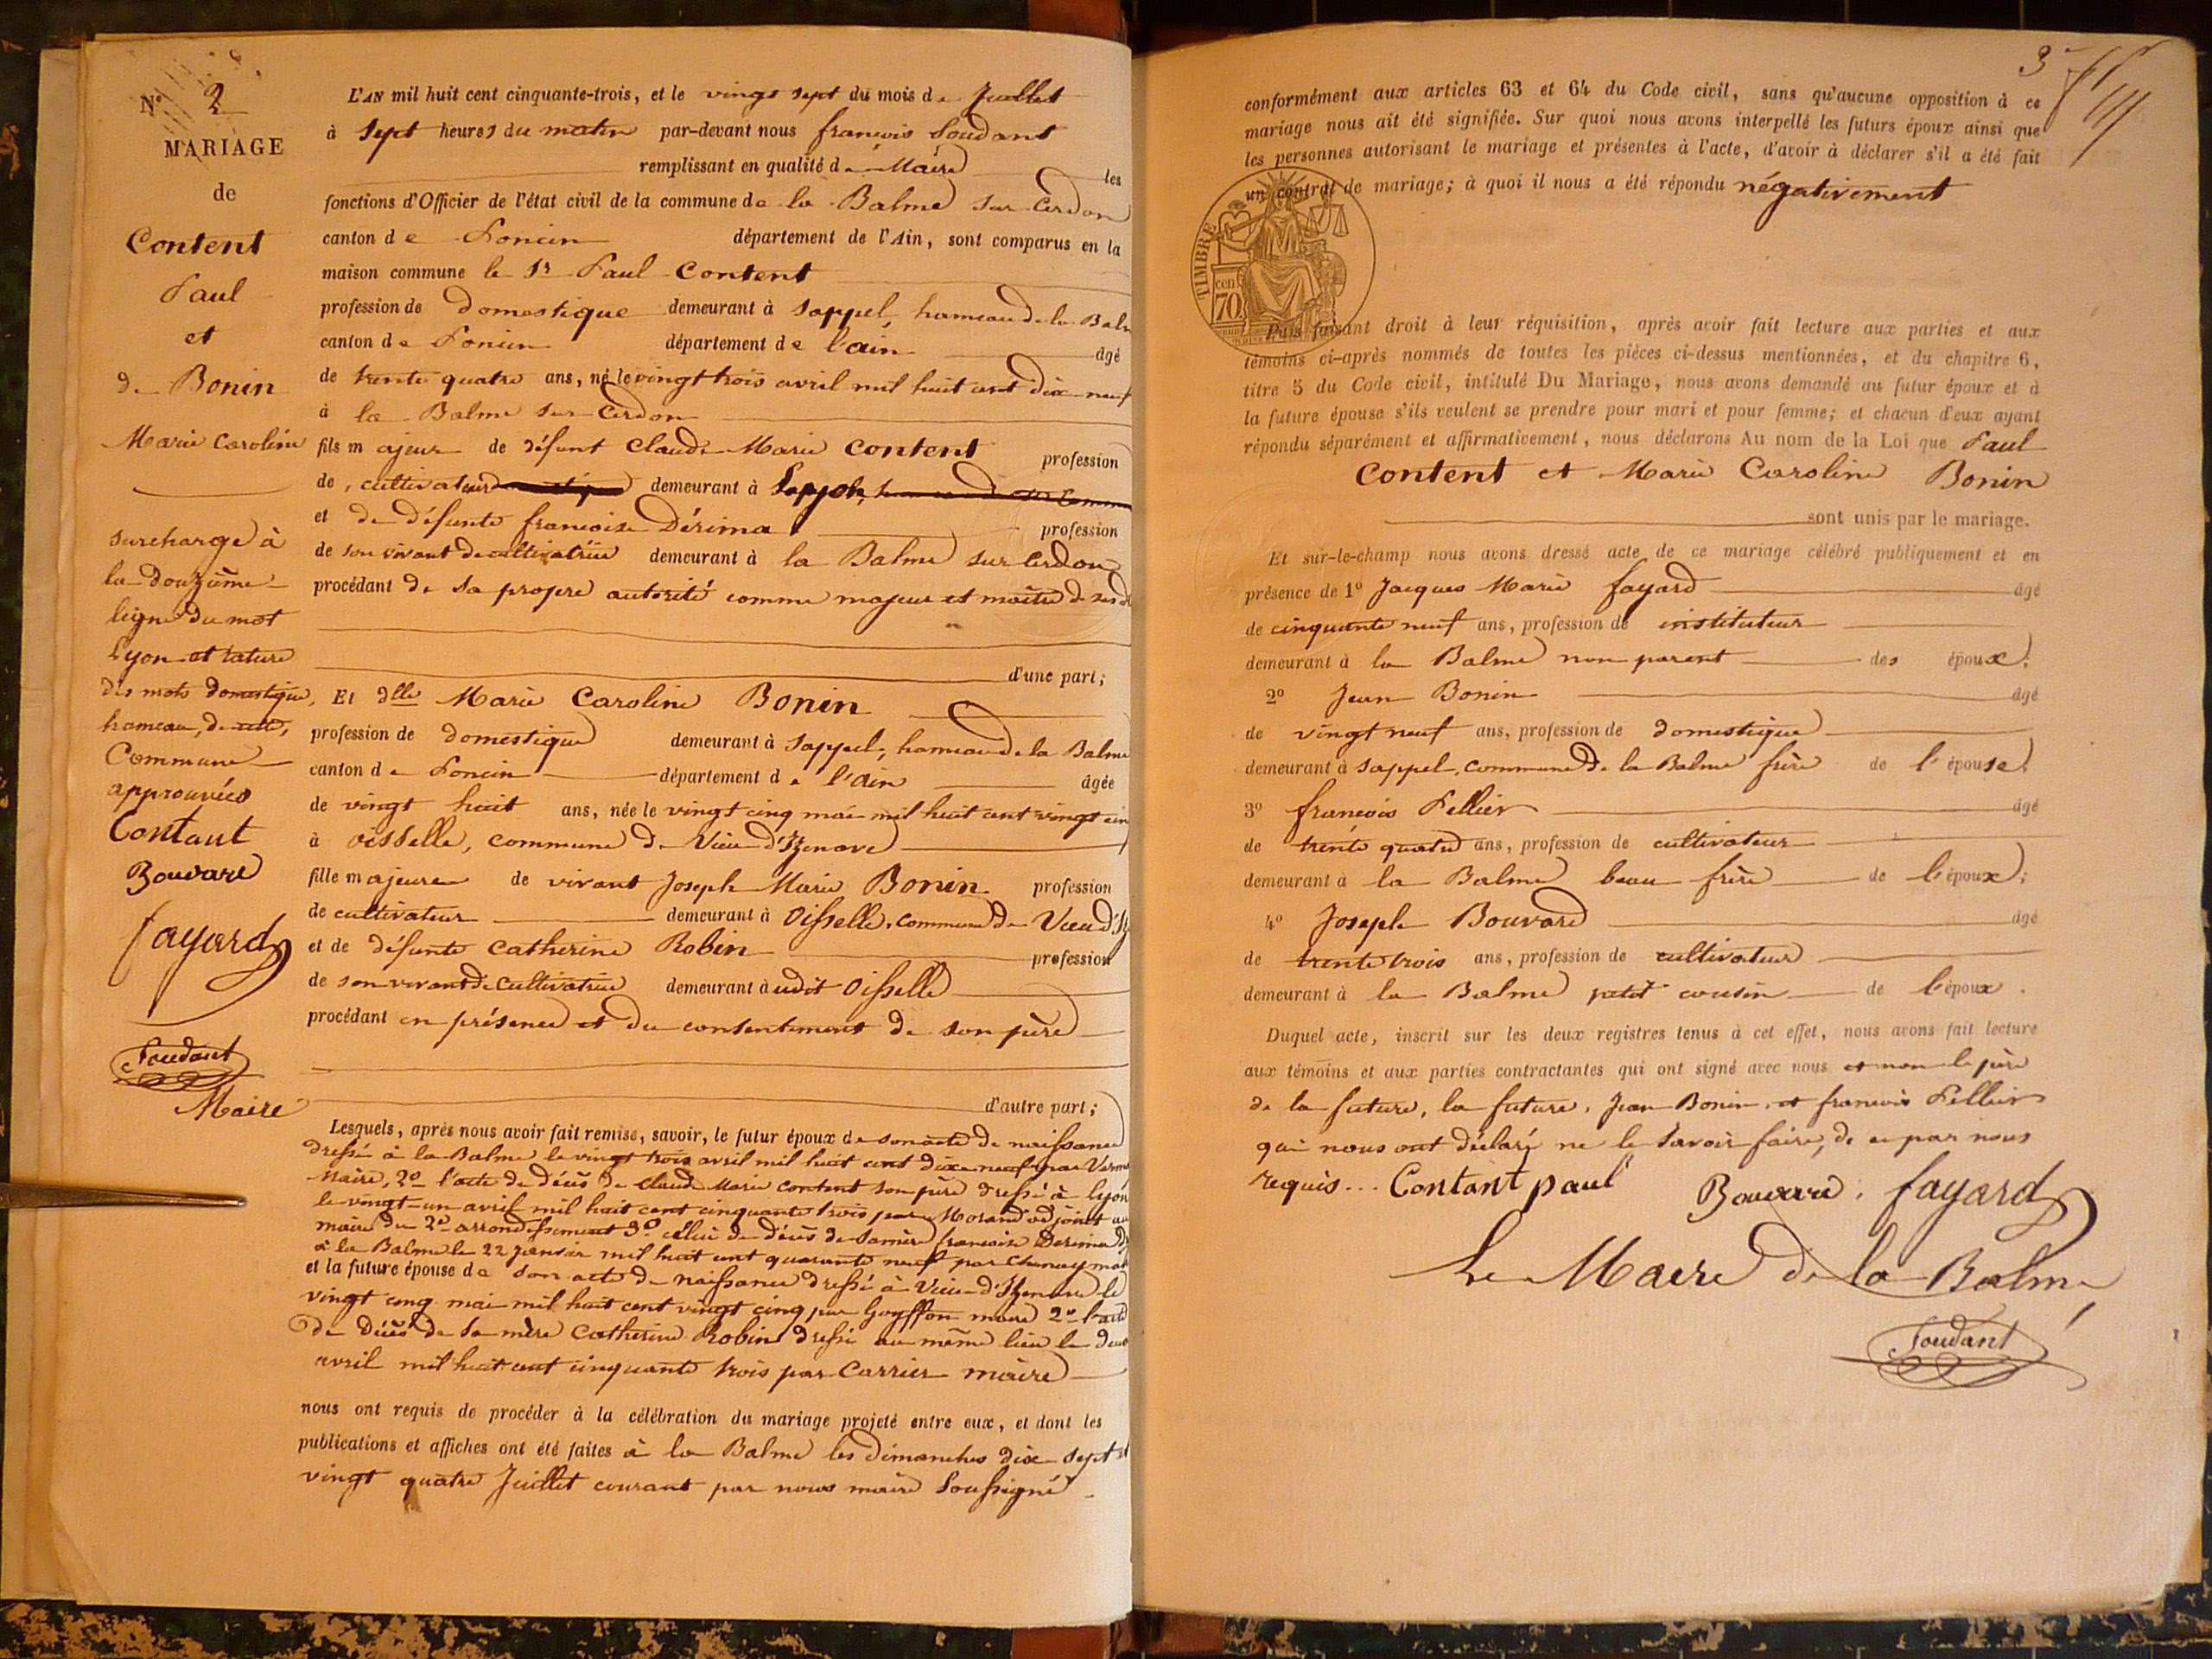 N° 2
MARIAGE
de
Content
Paul
et
de Bonin
Marie Caroline
surcharge à
la douzième
ligne du mot
Lyon et rature
des mots domestique,
hameau, de cette,
Commune
approuvées
Contant
Bouvard
fayard
Soudant
Maire
L'AN mil huit cent cinquante-trois, et le vingt sept du mois de Juillet
à sept heures du matin par-devant nous françois Soudant
remplissant en qualité de Maire les
fonctions d'Officier de l'état civil de la commune de la Balme sur Cerdon
canton de Poncin département de l'Ain, sont comparus en la
maison commune le Sr Paul Content
profession de domestique demeurant à Sappel, hameau de la Balm
canton de Poncin département de l'ain âgé
de trente quatre ans, né le vingt trois avril mil huit cent dix neuf
à la Balme sur Cerdon
fils majeur de défunt Claude Marie Content profession
de, cultivateur demeurant à
et de défunte françoise Dérima profession
de son vivant de cultivatrice demeurant à la Balme sur Cerdon
procédant de sa propre autorité comme majeur et maître de ses d
d'une part;
Et dlle Marie Caroline Bonin
profession de domestique demeurant à Sappel, hameau de la Balme
canton de Poncin département de l'ain âgée
de vingt huit ans, née le vingt cinq mai mil huit cent vingt cin
à oisselle, commune de Vieu d'Izenave
fille majeure de vivant Joseph Marie Bonin profession
de cultivateur demeurant à Oisselle, commune de Vieu d'Iz
et de défunte Catherine Robin profession
de son vivant de Cultivatrice demeurant à udit Oisselle
procédant en présence et du consentement de son père
d'autre part;
Lesquels, après nous avoir fait remise, savoir, le futur époux de son acte de naissance
dressé à la Balme le vingt trois avril mil huit cent dix neuf par
Maire, 2° l'acte de décès de Claude Marie Content son père dressé à Lyon
le vingt-un avril mil huit cent cinquante trois par Morand adjoint au
maire du 2e arrondissement 3° celui de décès de sa mère françoise Derima d
à la Balme le 22 janvier mil huit cent quarante neuf par Chanay mai
et la future épouse de son acte de naissance dressé à Vieu d'Izenave le
vingt cinq mai mil huit cent vingt cinq par Goyffon maire 2° l'acte
de décès de sa mère Catherine Robin dressé au même lieu le deux
avril mil huit cent cinquante trois par Carrier maire
nous ont requis de procéder à la célébration du mariage projeté entre eux, et dont les
publications et affiches ont été faites à la Balme les dimanches dix sept et
vingt quatre Juillet courant par nous maire Soussigné
3
conformément aux articles 63 et 64 du Code civil, sans qu'aucune opposition à ce
mariage nous ait été signifiée. Sur quoi nous avons interpellé les futurs époux ainsi que
les personnes autorisant le mariage et présentes à l'acte, d'avoir à déclarer s'il a été fait
un contrat de mariage; à quoi il nous a été répondu négativement
TIMBRE
cen
70
Puis faisant droit à leur réquisition, après avoir fait lecture aux parties et aux
témoins ci-après nommés de toutes les pièces ci-dessus mentionnées, et du chapitre 6,
titre 5 du Code civil, intitulé Du Mariage, nous avons demandé au futur époux et à
la future épouse s'ils veulent se prendre pour mari et pour femme; et chacun d'eux ayant
répondu séparément et affirmativement, nous déclarons Au nom de la Loi que Paul
Content et Marie Caroline Bonin
sont unis par le mariage.
Et sur-le-champ nous avons dressé acte de ce mariage célébré publiquement et en
présence de 1° Jacques Marie fayard âgé
de cinquante neuf ans, profession de instituteur
demeurant à la Balme non parent des époux;
2° Jean Bonin âgé
de vingt neuf ans, profession de domestique
demeurant à Sappel, commune de la Balme frère de l'épouse;
3° françois Pellier âgé
de trente quatre ans, profession de cultivateur
demeurant à la Balme beau frère de l'époux;
4° Joseph Bouvard âgé
de trente trois ans, profession de cultivateur
demeurant à la Balme petit cousin de l'époux.
Duquel acte, inscrit sur les deux registres tenus à cet effet, nous avons fait lecture
aux témoins et aux parties contractantes qui ont signé avec nous et non le père
de la future, la future, Jean Bonin, et françois Pellier
qui nous ont déclaré ne le savoir faire, de ce par nous
requis... Contant paul Bouvard fayard
Le Maire de la Balme
Soudant